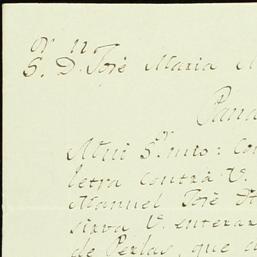 S. D. José Maria
Mui S.r mio: Con
letra contra V.
Manuel José
sirva V. enterar
de Perlas, que